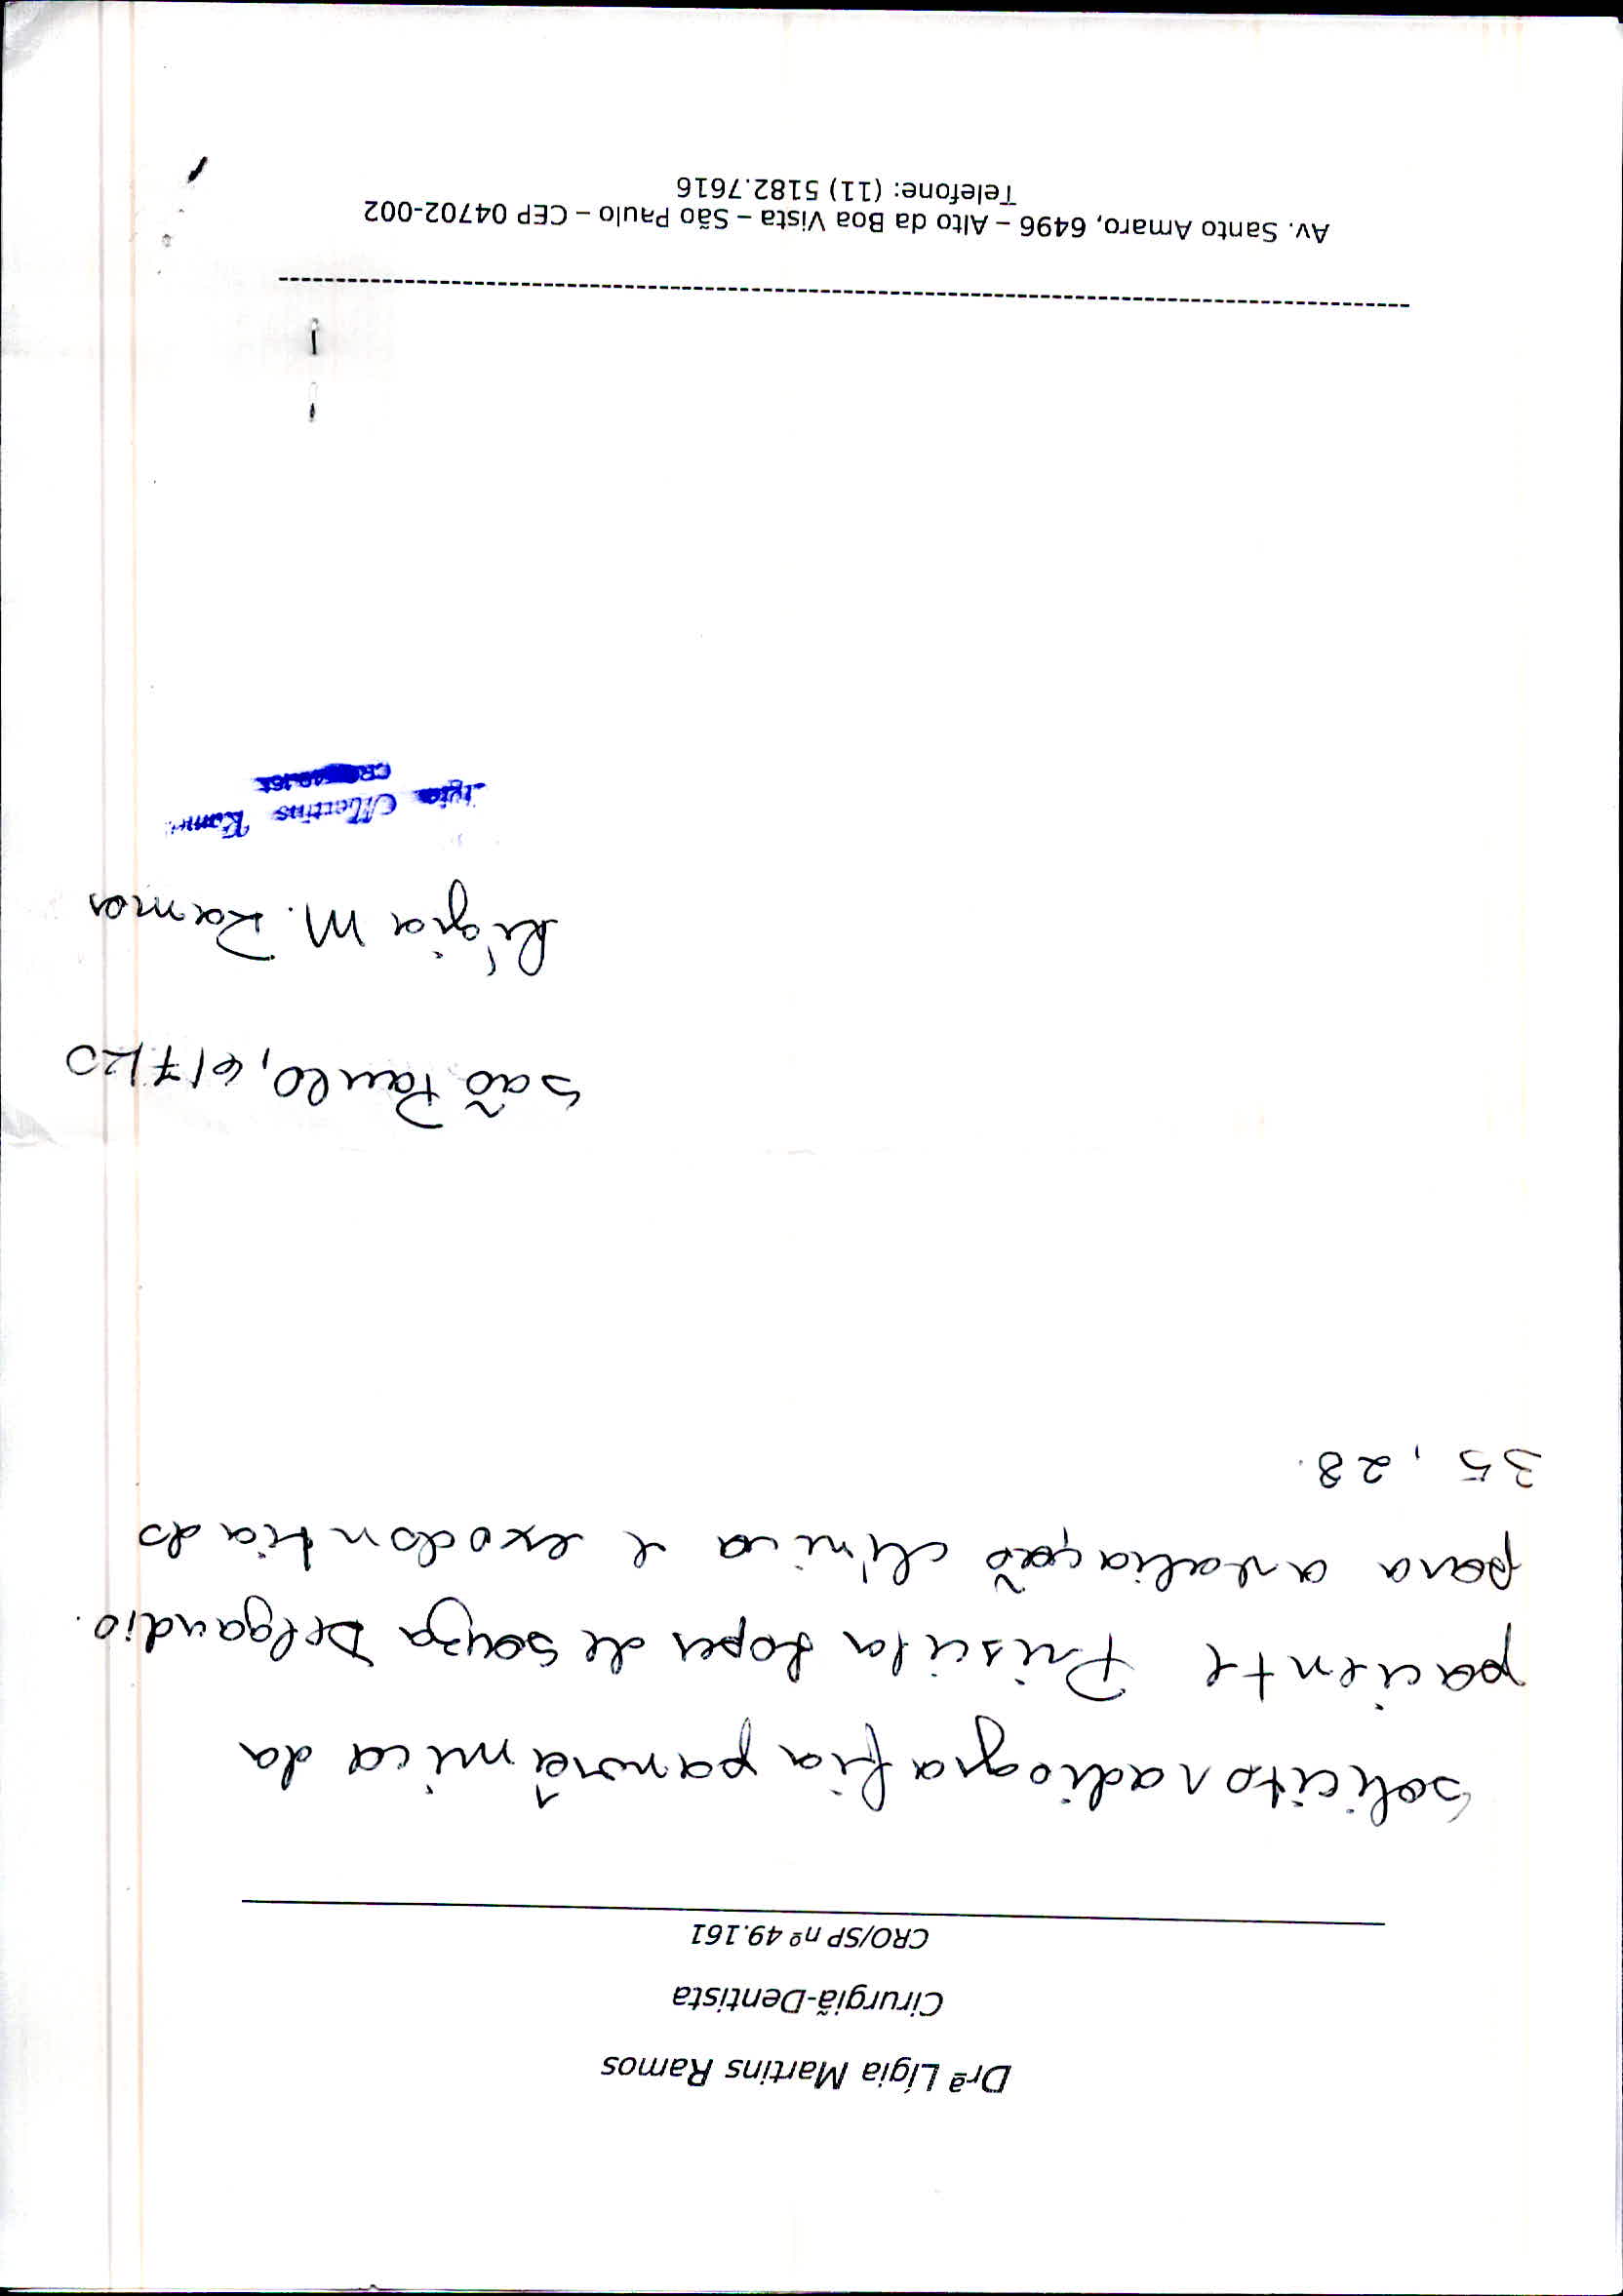 Drª Lígia Martins Ramos
Cirurgiã-Dentista
CRO/SP nº 49.161
Solicito radiografia panorâmica da
paciente Priscila Lopes de Souza Delgaudio.
para avaliação clínica e exodontia do
35, 28.
São Paulo, 6/7/20
Lígia M. Ramos
Lígia Martins Ramos
Av. Santo Amaro, 6496 – Alto da Boa Vista – São Paulo – CEP 04702-002
Telefone: (11) 5182.7616